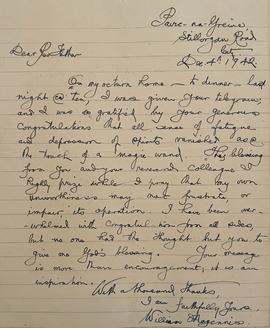 Stillorgan Road
Dec 4th 1942.
Dear Father
On my return home – to dinner – last
night @ ten, I was given your telegram;
and I was so gratified by your generous
congratulations that all sense of fatigue
and depression of spirits vanished as @
the touch of a magic wand. The blessing
from you and your reverend colleague I
highly prize while I pray that my own
unworthiness may not frustrate, or
impair, its operation. I have been over-
-whelmed with congratulation from all sides
but no one had the thought but you to
give me God's blessing. Your message
is more than encouragement, it is an
inspiration.
With a thousand thanks,
I am
faithfully yours,
William Magennis